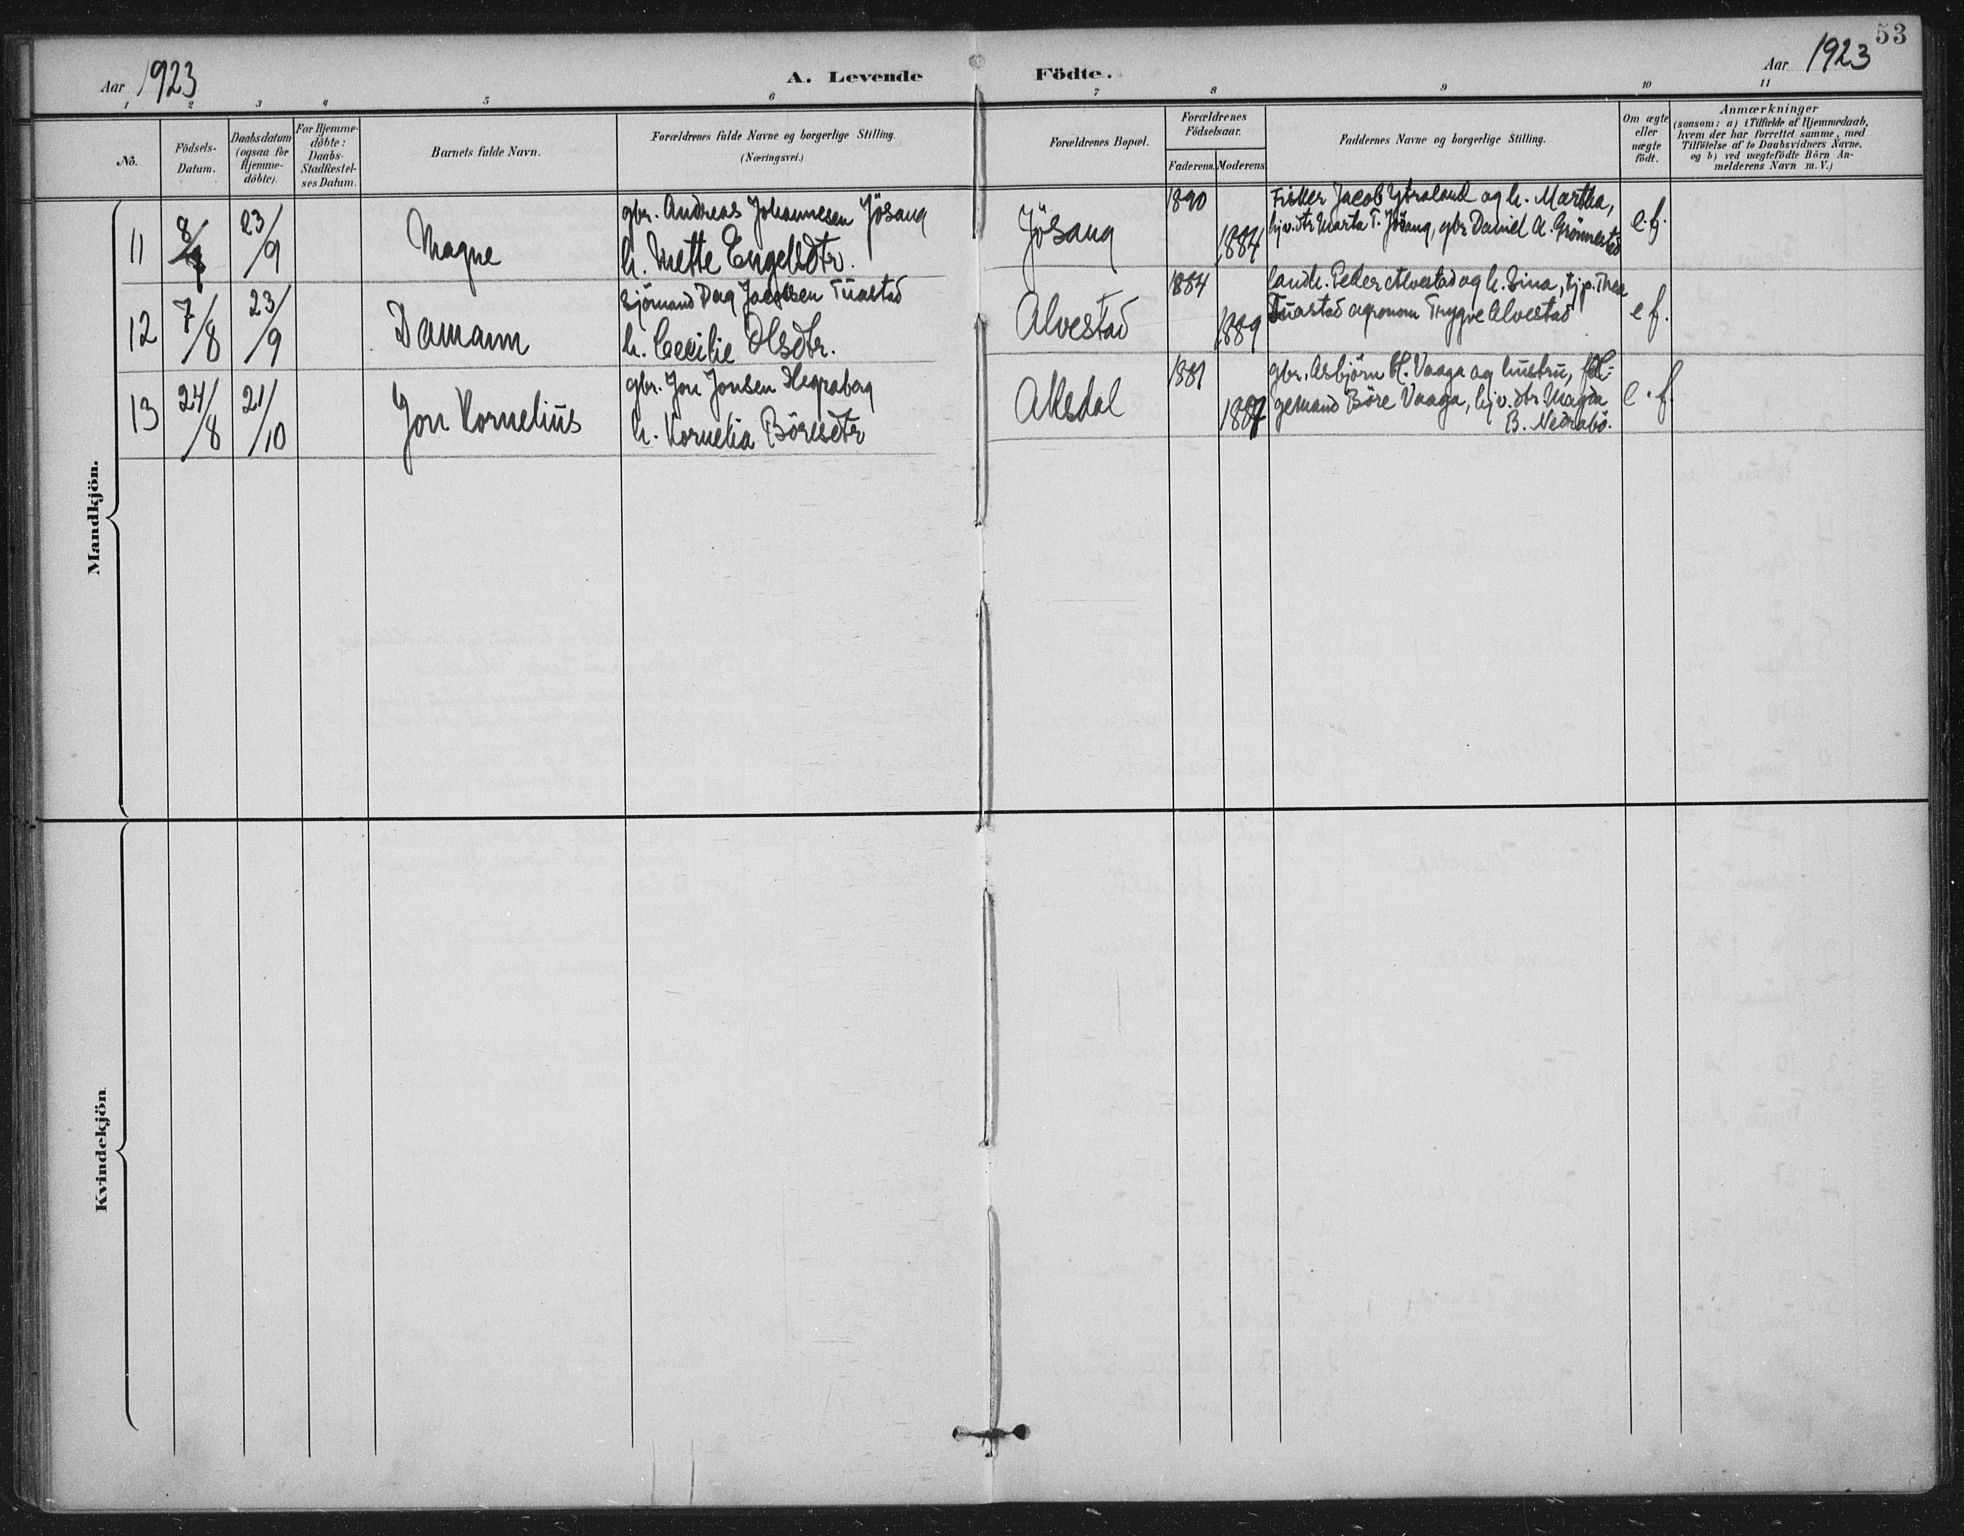 53
Aar 1923
A. Levende Födte.
Aar 1923
1 2 3 4 5 6 7 8 9 10 11
No.
Födsels-
Datum.
Daabsdatum
(ogsaa for
Hjemme-
döbte).
For Hjemme-
döbte:
Daabs-
Stadfæstel-
ses Datum.
Barnets fulde Navn.
Forældrenes fulde Navne og borgerlige Stilling.
(Næringsvei.)
Forældrenes Bopæl.
Forældrenes
Födselsaar.
Faderens. Moderens.
Faddernes Navne og borgerlige Stilling.
Om ægte
eller
uægte
födt.
Anmærkninger
(saasom: a) i Tilfælde af Hjemmedaab,
hvem der har forrettet samme, med
Tilföielse af to Daabsvidners Navne,
og b) ved uægtefödte Börn An-
melderens Navn m. V.)
Mandkjön.
11 8/ 23/9 Magne
gbr. Andreas Johannesen Jösang
h. Mette Engelsdtr.
Jösang 1890 1884
Fisker Jacob Ytraland og h. Martha,
hjv. dtr Marta T. Jösang, gbr Daniel A. Grönnestad
e.f.
12 7/8 23/9 Damann
Sjömand Dag Jacobsen Tuastad
h. Cecilie Olsdtr.
Alvestad 1884 1889
landh. Peder Alvestad og h. Sina, tjp. Thea
Tuastad agronom Trygve Alvestad
e f.
13 24/8 21/10 Jon Kornelius
gbr. Jon Jonsen Hegraberg
h. Kornelia Böresdtr
Aksdal 1881 1887
gbr. Asbjörn H. Vaaga og hustru,
gemand Böre Vaaga, hjv. dtr Magda
B. Nedrabö.
e.f.
Kvindekjön